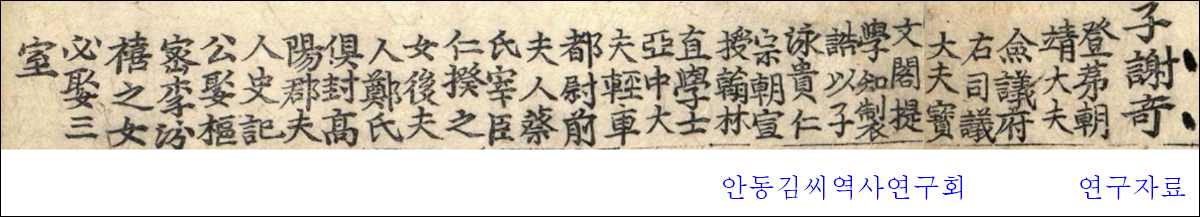 子謝奇
登苐朝
靖大夫
㑒議府
右司議
大夫寳
文閣提
學知製
誥以子
詠貴仁
宗朝宣
授翰林
直學士
亞中大
夫輕車
都尉前
夫人蔡
氏宰臣
仁揆之
女後夫
人鄭氏
俱封高
陽郡夫
人史記
公娶樞
密李汾
禧之女
必娶三
室
안동김씨역사연구회 연구자료